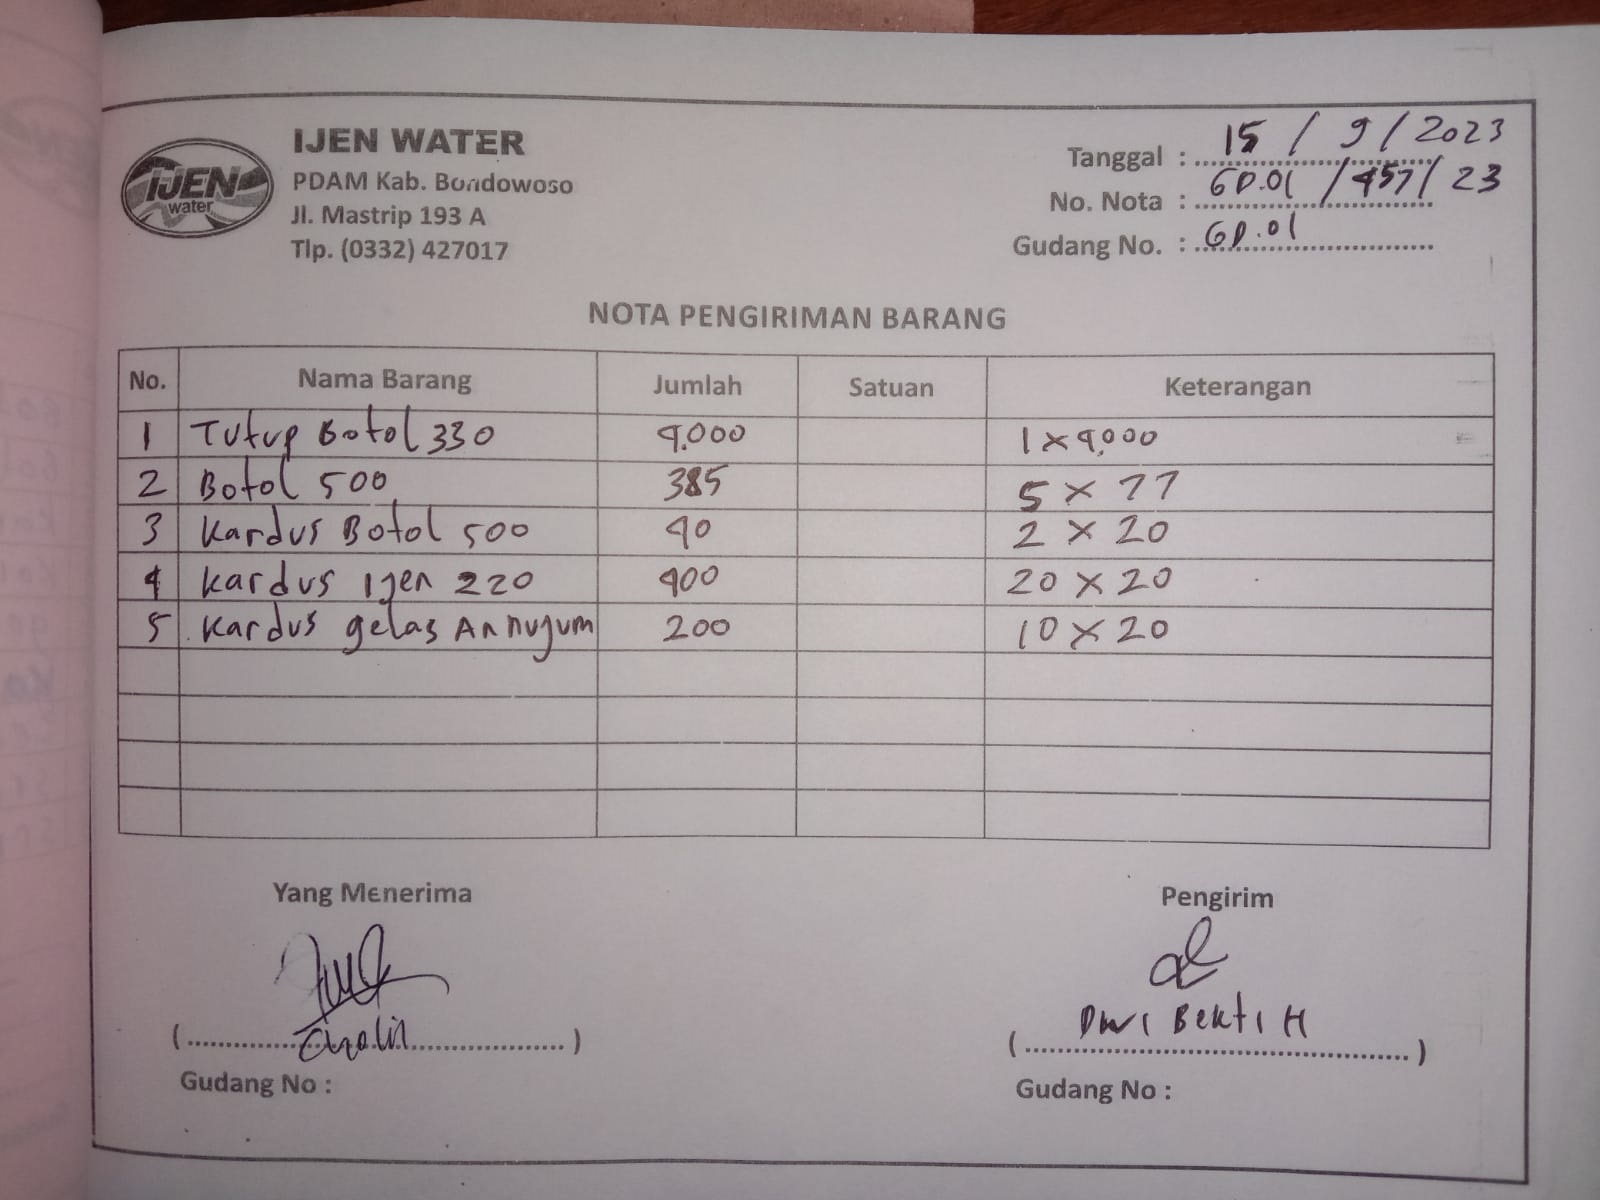 IJEN WATER
PDAM Kab. Bondowoso
Jl. Mastrip 193 A
Tlp. (0332) 427017
IJEN
water
Tanggal : 15 / 9 / 2023
No. Nota : GD.01 / 457 / 23
Gudang No. : GD.01
NOTA PENGIRIMAN BARANG
No. Nama Barang Jumlah Satuan Keterangan
1 Tutup Botol 330 4.000 1 x 4.000
2 Botol 500 385 5 x 77
3 Kardus Botol 500 40 2 x 20
4 Kardus Ijen 220 400 20 x 20
5 Kardus gelas Annujum 200 10 x 20
Yang Menerima Pengirim
(..........) (Dwi Bekti H)
Gudang No : Gudang No :